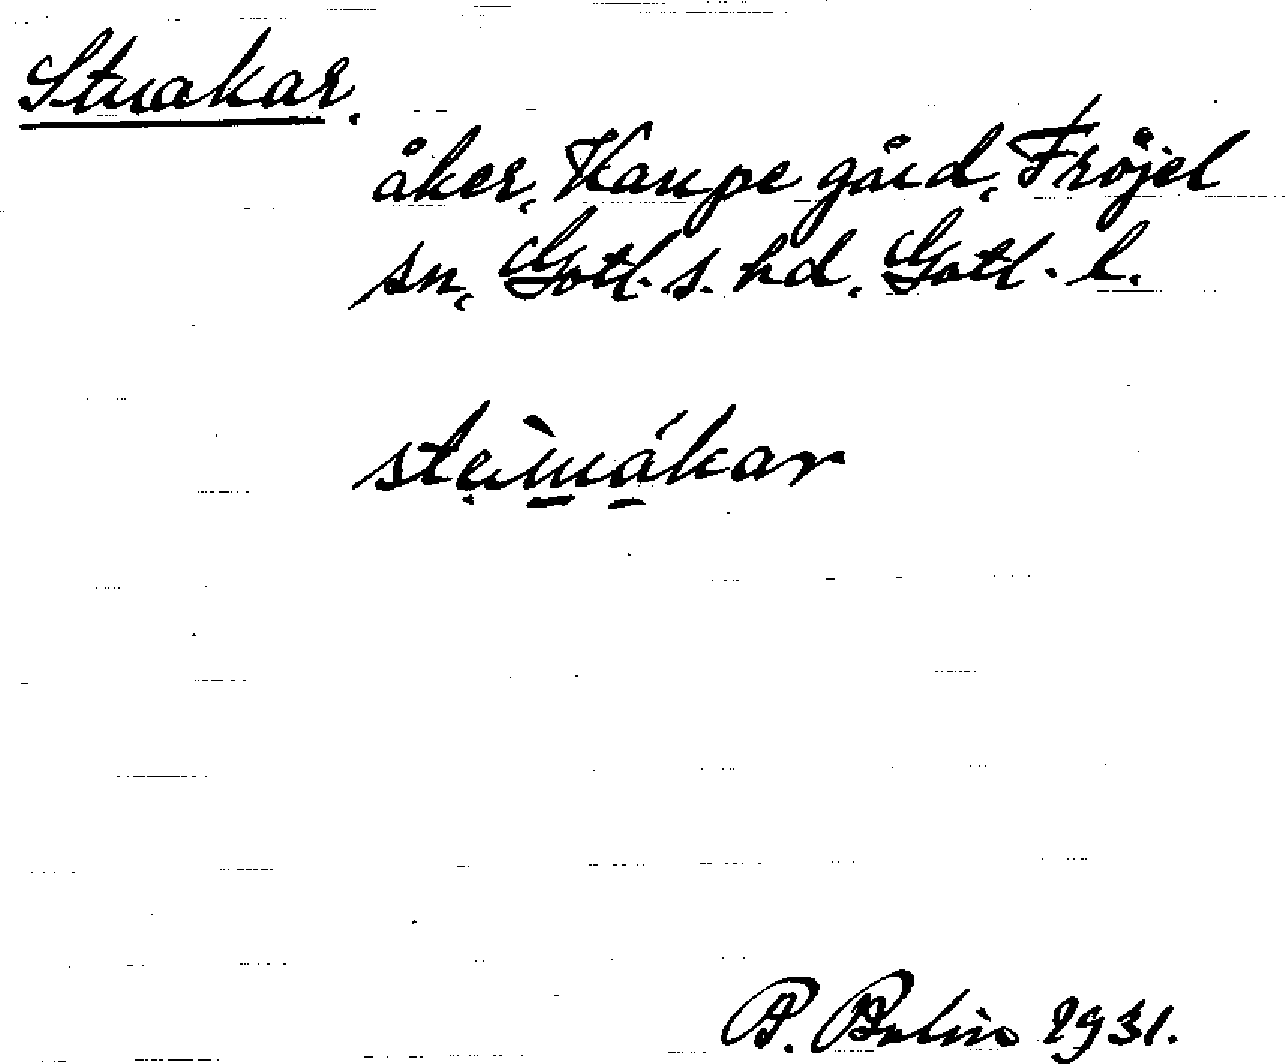 Stuakar.
åker, Kaupe gård, Fröjel
sn, Gotl. s. hd. Gotl. l.
P. Bolin 1931.